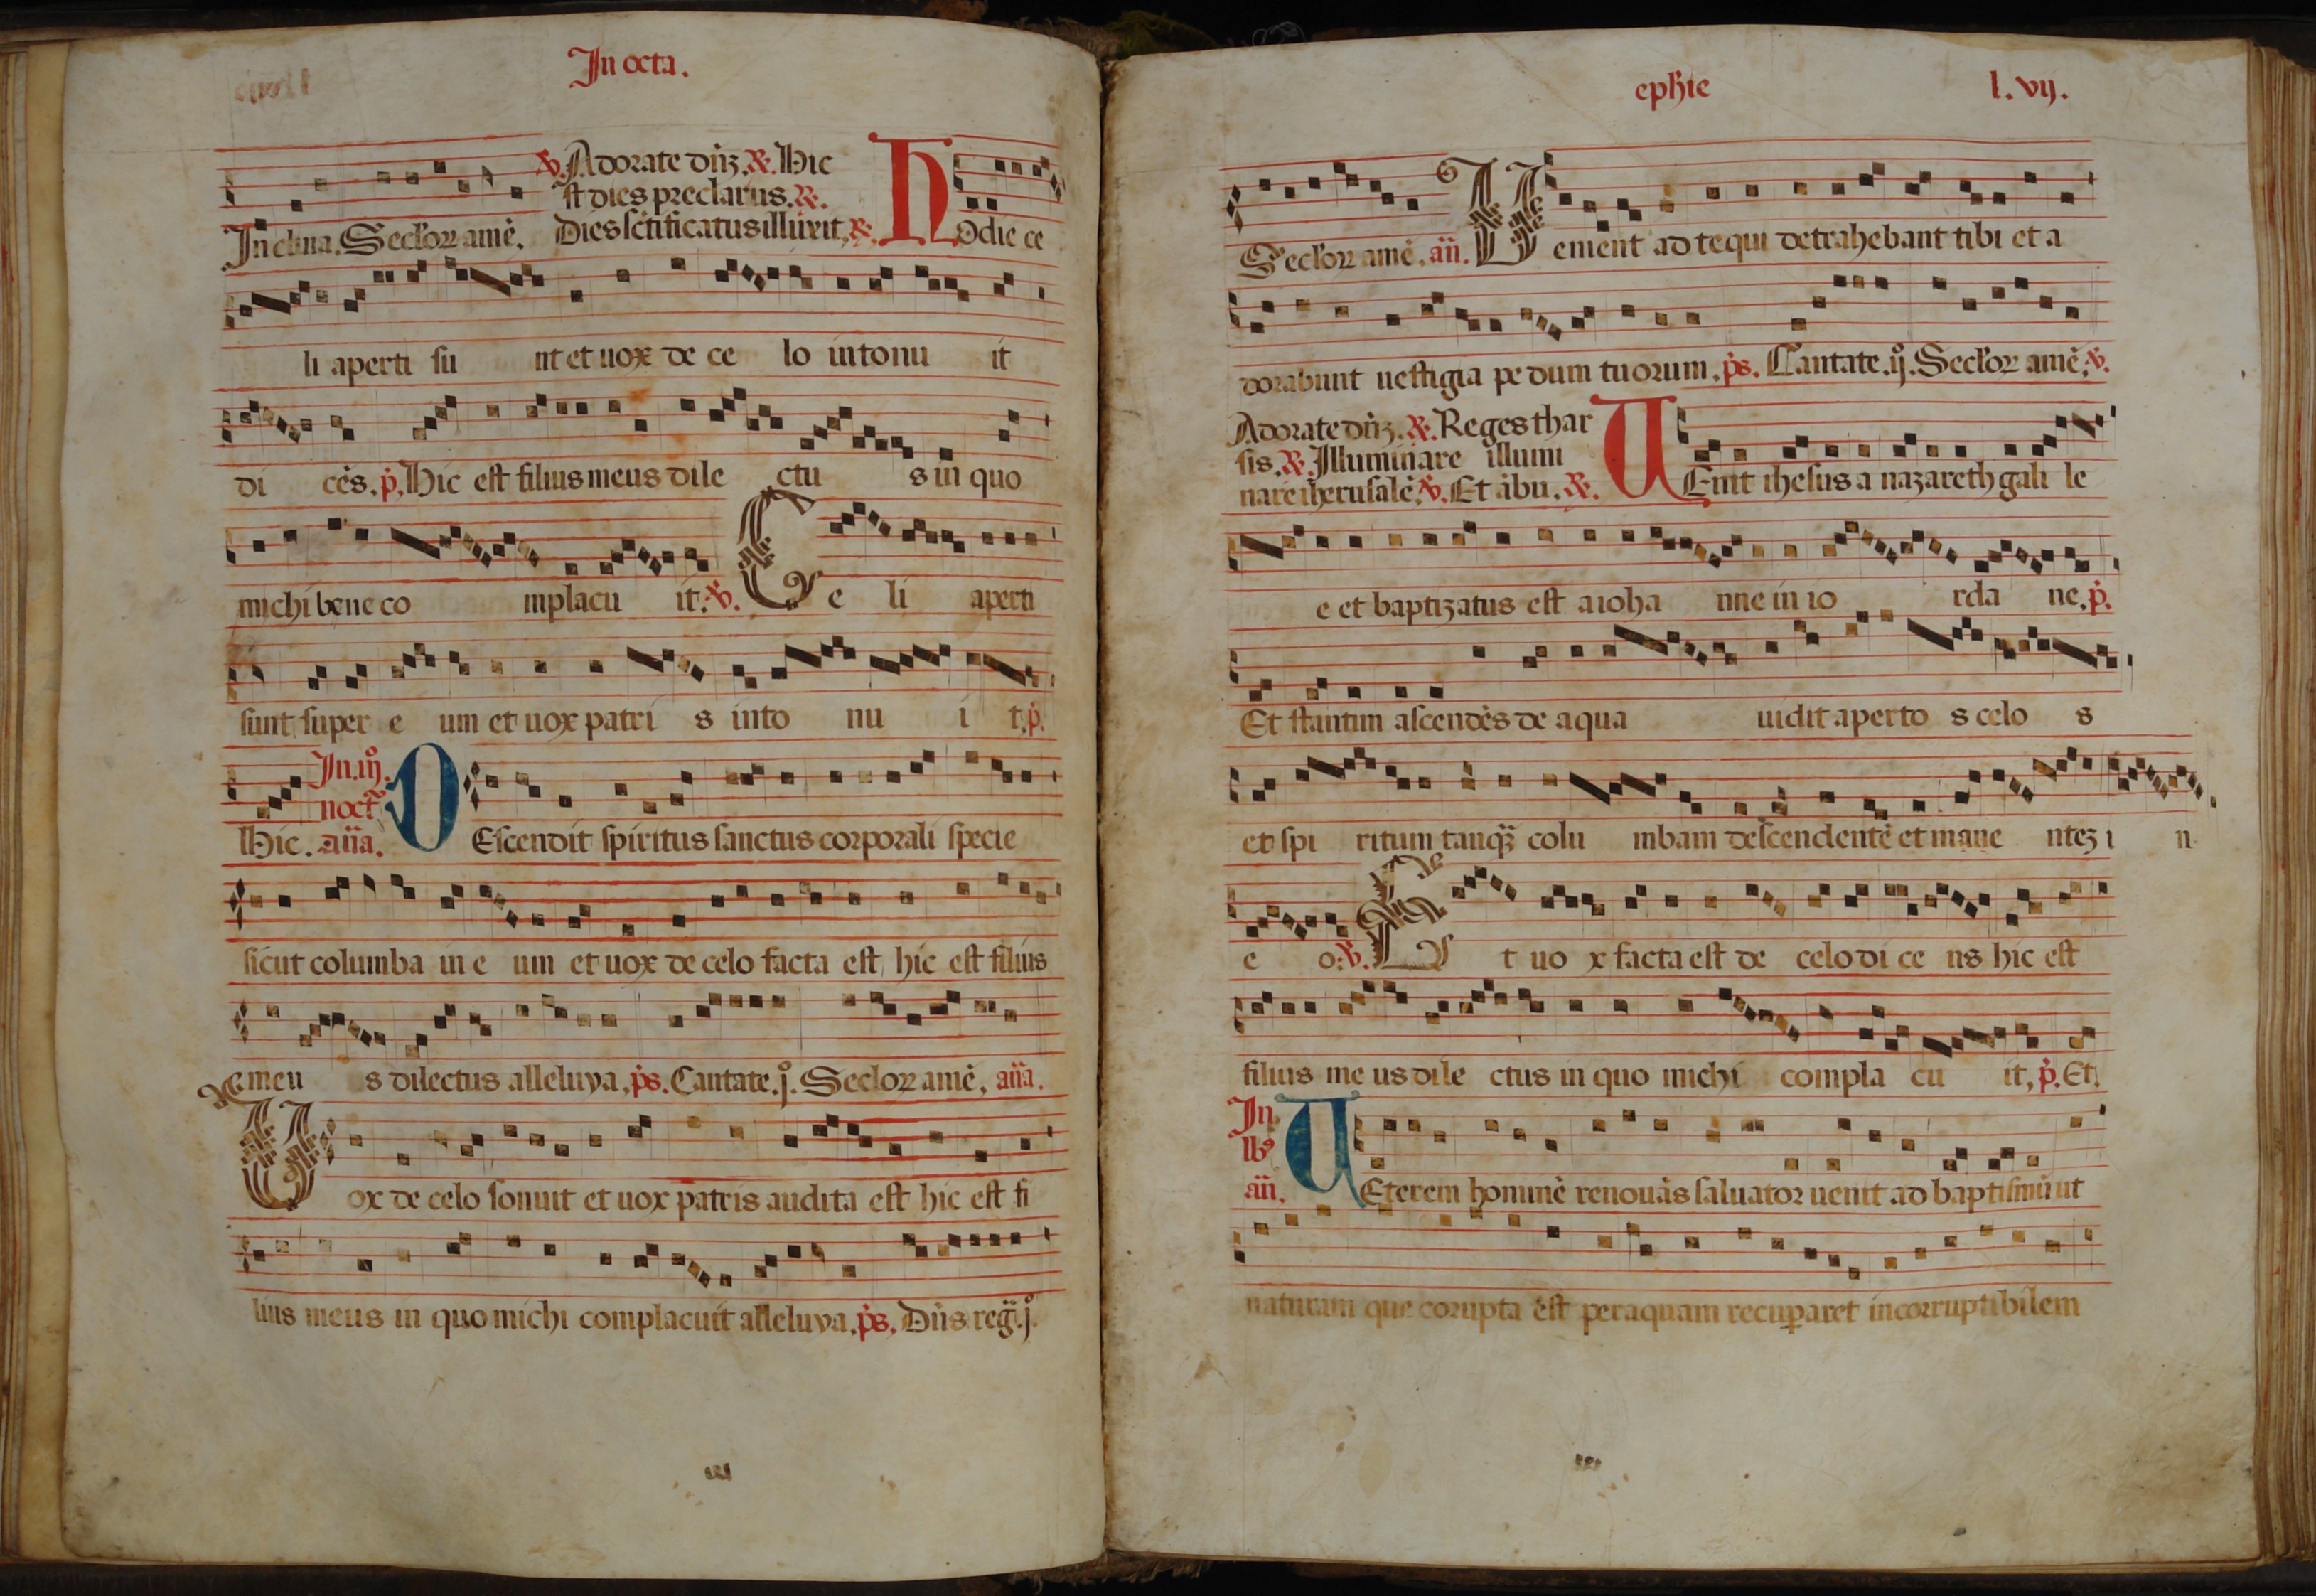 In octa.
℣. Adorate dn̄ꝫ. ℟. Hic
est dies preclarus. ℟.
Inclina. Secl'oꝝ amē. Dies sc̄tificatus illuxit, ℟. Hodie ce
li aperti su nt et uox de ce lo intonu it
di cēs. p̄. Hic est filius meus dile ctu s in quo
michi bene co mplacu it: ℣. Ce li aperti
sunt super e um et uox patri s into nu i t, p̄.
In. iijº.
noct'
Hic. an̄a. DEscendit spiritus sanctus corporali specie
sicut columba in e um et uox de celo facta est, hic est filius
meu s dilectus alleluya, p̄s. Cantate. jº. Secl'oꝝ amē, an̄a.
Vox de celo sonuit et uox patris audita est hic est fi
lius meus in quo michi complacuit alleluya, p̄s, Dn̄s reḡ. jº.
ephie l. vij.
Secl'oꝝ amē, an̄. Uenient ad te qui detrahebant tibi et a
dorabunt uestigia pe dum tuorum, p̄s. Cantate. ijº. Secl'oꝝ amē, ℣.
Adorate dn̄ꝫ. ℟. Reges thar
sis. ℟. Illuminare illumi
nare iherusalē, ℣. Et ābu. ℟. UEnit ihesus a nazareth gali le
e et baptizatus est a ioha nne in io rda ne, p̄.
Et stantim ascendēs de aqua uidit aperto s celo s
et spi ritum tanqꝫ̄ colu mbam descendentē et mane ntez i n
e o: ℣. Et uo x facta est de celo di ce ns hic est
filius me us dile ctus in quo michi compla cu it, p̄. Et
In
lb'
an̄. UEterem hominē renouās saluator uenit ad baptismū ut
naturam que corupta est per aquam recuꝑaret incorruptibilem